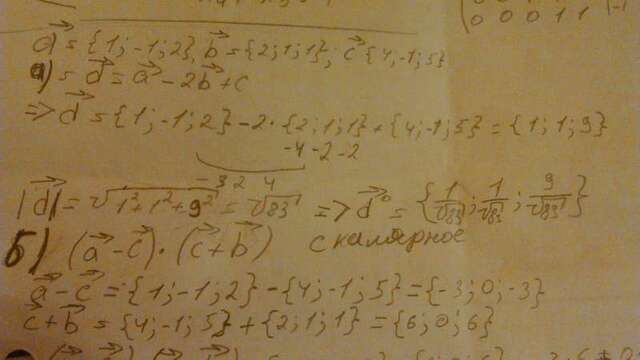 0 0 0 1 1
a⃗ = {1; -1; 2}, b⃗ = {2; 1; 1}, c⃗ {4; -1; 5}
а) = d⃗ = a⃗ - 2b⃗ + c
=> d⃗ = {1; -1; 2} - 2 · {2; 1; 1} + {4; -1; 5} = {1; 1; 9}
-4 -2 -2
-3 2 4
|d⃗| = √1²+1²+9² = √83 => d⃗° = {1/√83; 1/√83; 9/√83}
б) (a⃗ - c⃗) · (c⃗ + b⃗) скалярное
a⃗ - c⃗ = {1; -1; 2} - {4; -1; 5} = {-3; 0; -3}
c⃗ + b⃗ = {4; -1; 5} + {2; 1; 1} = {6; 0; 6}